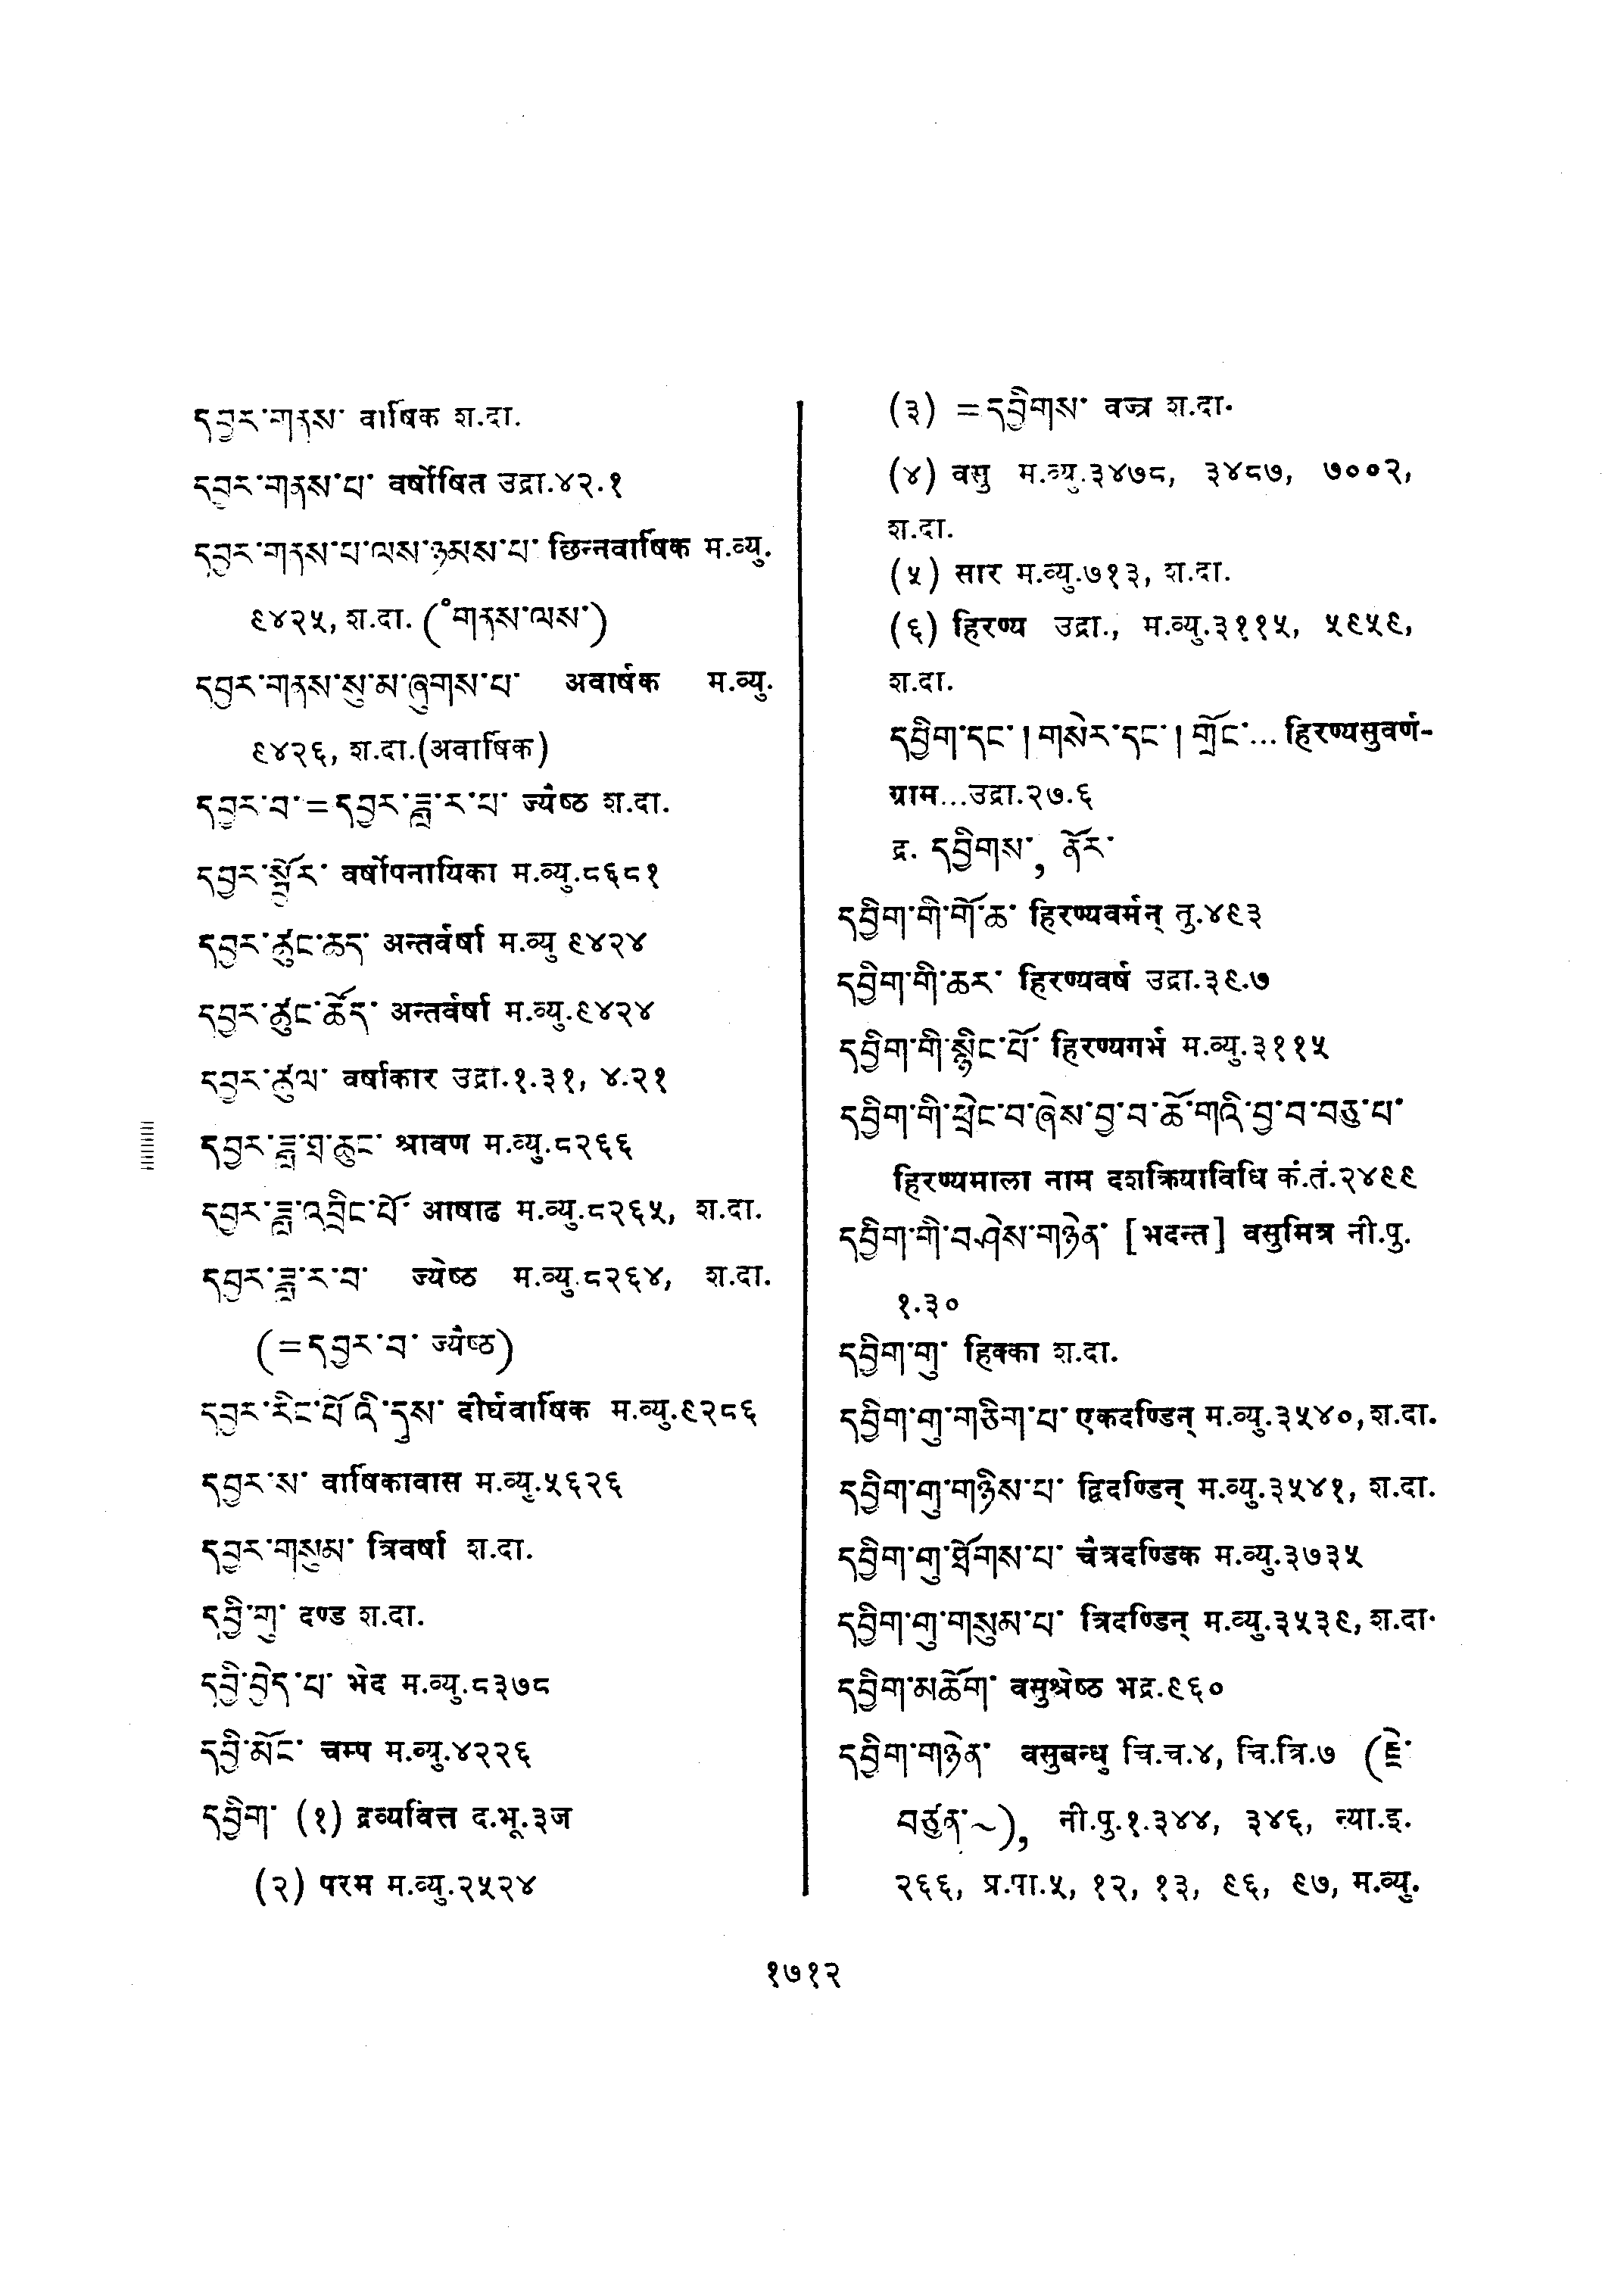 དབྱར་གནས་ वार्षिक श.दा.
དབྱར་གནས་པ་ वर्षोषित उद्रा.४२.१
དབྱར་གནས་པ་ལས་ཉམས་པ་ छिन्नवार्षिक म.व्यु.
९४२५, श.दा. (°གནས་ལས་)
དབྱར་གནས་སུ་མ་ཞུགས་པ་ अवार्षक म.व्यु.
९४२६, श.दा.(अवार्षिक)
དབྱར་བ་=དབྱར་ཟླ་ར་པ་ ज्यैष्ठ श.दा.
དབྱར་སྦྱོར་ वर्षोपनायिका म.व्यु.८६८१
དབྱར་ཚུང་ཆད་ अन्तर्वर्षा म.व्यु ९४२४
དབྱར་ཚུང་ཆོད་ अन्तर्वर्षा म.व्यु.९४२४
དབྱར་ཚུལ་ वर्षाकार उद्रा.१.३१, ४.२१
དབྱར་ཟླ་ཐ་ཆུང་ श्रावण म.व्यु.८२६६
དབྱར་ཟླ་འབྲིང་པོ་ आषाढ म.व्यु.८२६५, श.दा.
དབྱར་ཟླ་ར་བ་ ज्येष्ठ म.व्यु.८२६४, श.दा.
(=དབྱར་བ་ ज्यैष्ठ)
དབྱར་རིང་པོ་འི་དུས་ दीर्घवार्षिक म.व्यु.९२८६
དབྱར་ས་ वार्षिकावास म.व्यु.५६२६
དབྱར་གསུམ་ त्रिवर्षा श.दा.
དབྱི་གུ་ दण्ड श.दा.
དབྱི་བྱེད་པ་ भेद म.व्यु.८३७८
དབྱི་མོང་ चम्प म.व्यु.४२२६
དབྱིག་ (१) द्रव्यवित्त द.भू.३ज
(२) परम म.व्यु.२५२४
(३) =དབྱིགས་ वज्र श.दा.
(४) वसु म.व्यु.३४७८, ३४८७, ७००२,
श.दा.
(५) सार म.व्यु.७१३, श.दा.
(६) हिरण्य उद्रा., म.व्यु.३११५, ५९५९,
श.दा.
དབྱིག་དང་། གསེར་དང་། གྲོང་... हिरण्यसुवर्ण-
ग्राम...उद्रा.२७.६
द्र. དབྱིགས་, ནོར་
དབྱིག་གི་གོ་ཆ་ हिरण्यवर्मन् तु.४९३
དབྱིག་གི་ཆར་ हिरण्यवर्ष उद्रा.३९.७
དབྱིག་གི་སྙིང་པོ་ हिरण्यगर्भ म.व्यु.३११५
དབྱིག་གི་ཕྲེང་བ་ཞེས་བྱ་བ་ཆོ་གའི་བྱ་བ་བཅུ་པ་
हिरण्यमाला नाम दशक्रियाविधि कं.तं.२४९९
དབྱིག་གི་བ་ཤེས་གཉེན་ [भदन्त] वसुमित्र नी.पु.
१.३०
དབྱིག་གུ་ हिक्का श.दा.
དབྱིག་གུ་གཅིག་པ་ एकदण्डिन् म.व्यु.३५४०, श.दा.
དབྱིག་གུ་གཉིས་པ་ द्विदण्डिन् म.व्यु.३५४१, श.दा.
དབྱིག་གུ་ཐོགས་པ་ चैत्रदण्डिक म.व्यु.३७३५
དབྱིག་གུ་གསུམ་པ་ त्रिदण्डिन् म.व्यु.३५३९, श.दा.
དབྱིག་མཆོག་ वसुश्रेष्ठ भद्र.९६०
དབྱིག་གཉེན་ वसुबन्धु चि.च.४, चि.त्रि.७ (རྗེ་
བཙུན་~), नी.पु.१.३४४, ३४६, न्या.इ.
२६६, प्र.पा.५, १२, १३, ९६, ९७, म.व्यु.
१७१२